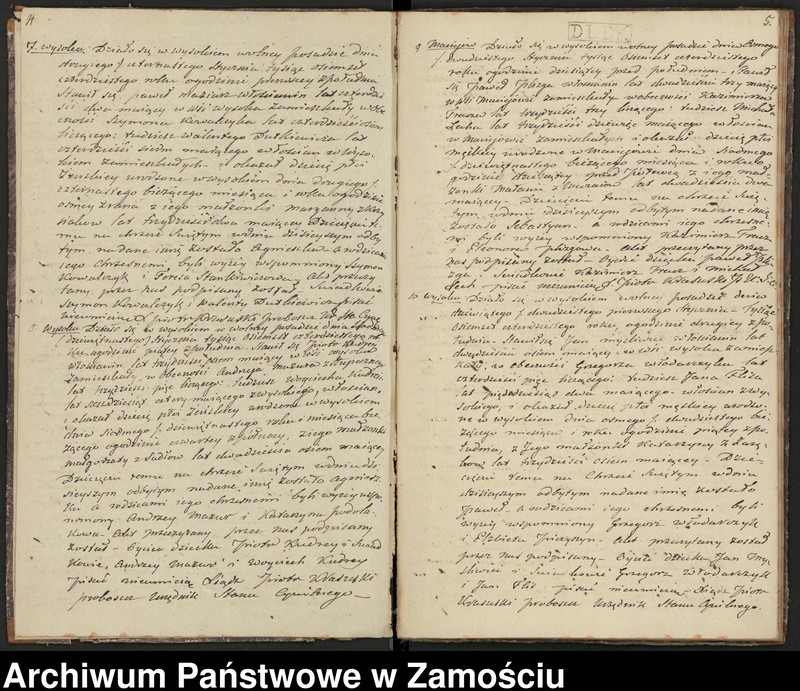 4
7. Wysokie Działo się w Wysokiem wolney posadzie dnia
drugiego / czternastego Stycznia tysiąc ośmset
czterdziestego roku o godzinie pierwszey z południa
Stawił się Paweł włościanin lat czterdzieści
ści dwa maiący w wsi Wysokie zamieszkały w obe-
cności Szymona Kowalczyka lat czterdzieści ośm
liczącego: tudzież Walentego Dutkiewicza lat
czterdzieści siedm maiącego włościan w Wyso-
kiem zamieszkałych i okazał dziecię płci
żeńskiey urodzone w Wysokiem dnia drugiego /
czternastego bieżącego miesiąca i roku o godzinie
ósmey z rana z iego małżonki Maryanny z
lat trzydzieści dwa maiącey Dziecięciu te-
mu na chrzcie Świętym w dniu dzisieyszym odby-
tym nadane imię zostało Agnieszka a rodzica-
mi iego chrzestnemi byli wyżey wspomniony Szymon
Kowalczyk i Teresa Stankiewiczowa Akt przeczy-
tany przez nas podpisany został Świadkowie
Szymon Kowalczyk i Walenty Dutkiewicz pisać
nieumieią X Piotr Krasuski Proboszcz Ur. St. Cyw.
8 Wysokie Działo się w Wysokiem w wolney posadzie dnia siódmego
/ dziewiętnastego / Stycznia tysiąc ośmset czterdziestego ro-
ku o godzinie piątey z południa Stawił się Piotr Kudrey
włościanin lat trzydzieści ośm maiący w wsi Wysokie
zamieszkały, w obecności Andrzeja Mazura
lat trzydzieści pięć liczącego: tudzież Woyciecha Kudrei
lat sześćdziesiąt cztery maiącego z Wysokiego, włościan,
i okazał dziecię płci żeńskiey urodzone w Wysokiem
dnia siódmego / dziewiętnastego roku i miesiąca bie-
żącego o godzinie czwartey z północy, z iego małżonki
Małgorzaty z Sadłów lat dwadzieścia ośm maiącey
Dziecięciu temu na chrzcie Świętym w dniu dzi-
sieyszym odbytym nadane imię zostało Agniesz-
ka a rodzicami iego chrzestnemi byli wyżey wspo-
mniony Andrzey Mazur i Katarzyna Podola-
kowa. Akt przeczytany przez nas podpisany
został – Oyciec dziecka Piotr Kudrey i Świad-
kowie, Andrzey Mazur i Woyciech Kudrey
pisać nieumieią Xiądz Piotr Krasuski
proboszcz Urzędnik Stanu Cywilnego –
5.
9 Maciejów Działo się w Wysokiem wolney posadzie dnia ósmego
/ dwudziestego Stycznia tysiąc ośmset czterdziestego
roku o godzinie dziesiątey przed południem – Stawił
się Paweł włościanin lat dwadzieścia trzy maiący
w wsi Maciejowie zamieszkały w obecności Kazimierza
Frąca lat trzydzieści trzy liczącego: tudzież Michała
Lecha lat trzydzieści dziewięć maiącego włościan
w Maciejowie zamieszkałych i okazał dziecię płci
męzkiey urodzone w Maciejowie dnia siódmego
/ dziewiętnastego bieżącego miesiąca i roku o
godzinie dziewiątey przed północą z iego mał-
żonki Maryanny z lat dwadzieścia dwa
maiącey – Dziecięciu temu na chrzcie Świę-
tym w dniu dzisieyszym odbytym nadane imię
zostało Sebastyan – a rodzicami iego chrzestne-
mi byli wyżey wspomniony Kazimierz Frąc
i Eleonora Akt przeczytany przez
nas podpisany został – Oyciec dziecka Paweł
i Świadkowie Kazimierz Frąc i Michał
Lech – pisać nieumieią X Piotr Krasuski P. U. S. C.
10 Wysokie Działo się w Wysokiem wolney posadzie dnia
dziewiątego / dwudziestego pierwszego Stycznia – tysiąc
ośmset czterdziestego roku, o godzinie drugiey z po-
łudnia Stawił się Jan Myśliwiec włościanin lat
dwadzieścia ośm maiący – w wsi Wysokie zamiesz-
kały; w obecności Grzegorza Włodarczyka lat
czterdzieści pięć liczącego: tudzież Jana Flisa
lat pięćdziesiąt dwa maiącego – włościan z Wy-
sokiego, i okazał dziecię płci męzkiey urodzo-
ne w Wysokiem dnia ósmego / dwudziestego bie-
żącego miesiąca i roku o godzinie piątey z po-
łudnia, z Jego małżonki Katarzyny z
lat trzydzieści ośm maiącey – Dzie-
cięciu temu na Chrzcie Świętym w dniu
dzisieyszym odbytym nadane imię zostało
Paweł a rodzicami iego chrzestnemi byli
wyżey wspomniony Grzegorz Włodarczyk
i Elżbieta Akt przeczytany został
przez nas podpisany – Oyciec dziecka Jan My-
śliwiec i Świadkowie Grzegorz Włodarczyk
i Jan Flis pisać nieumieią – Xiądz Piotr
Krasuski proboszcz Urzędnik Stanu Cywilnego.
Archiwum Państwowe w Zamościu